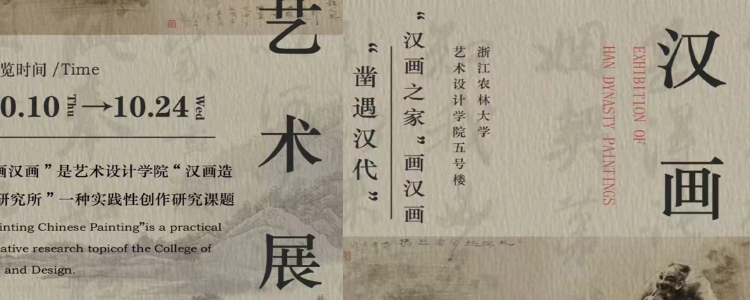 艺
术
展
览时间 /Time
0.10 Thu →10.24 Wed
画汉画”是艺术设计学院“汉画造
研究所”一种实践性创作研究课题
inting Chinese Painting”is a practical
ative research topicof the College of
and Design.
汉画
EXHIBITION OF
HAN DYNASTY PAINTINGS
浙江农林大学
艺术设计学院五号楼
“汉画之家”画汉画
“凿遇汉代”